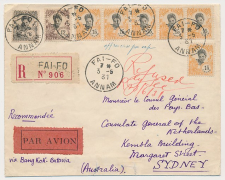 FAI-FO
ANNAM
FAI-FO
ANNAM
FAI-FO
7 M
3-6
31
ANNAM
R
FAI-FO
N° 906
Refused
Recommandée
Monsieur le Consul Général
des Pays Bas.
Consulate General of the
Netherlands.
Kembla Building
Margaret Street
SYDNEY
PAR AVION
via Bangkok Batavia
(Australia).